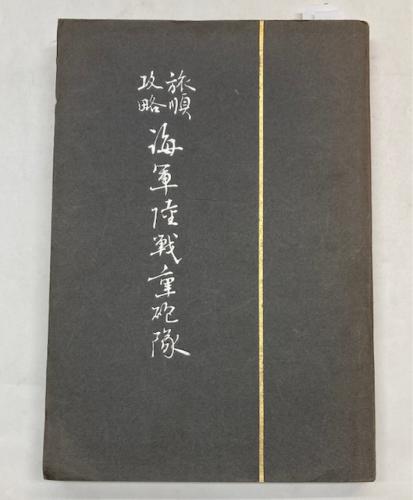 旅順
攻略
海軍陸戰重砲隊